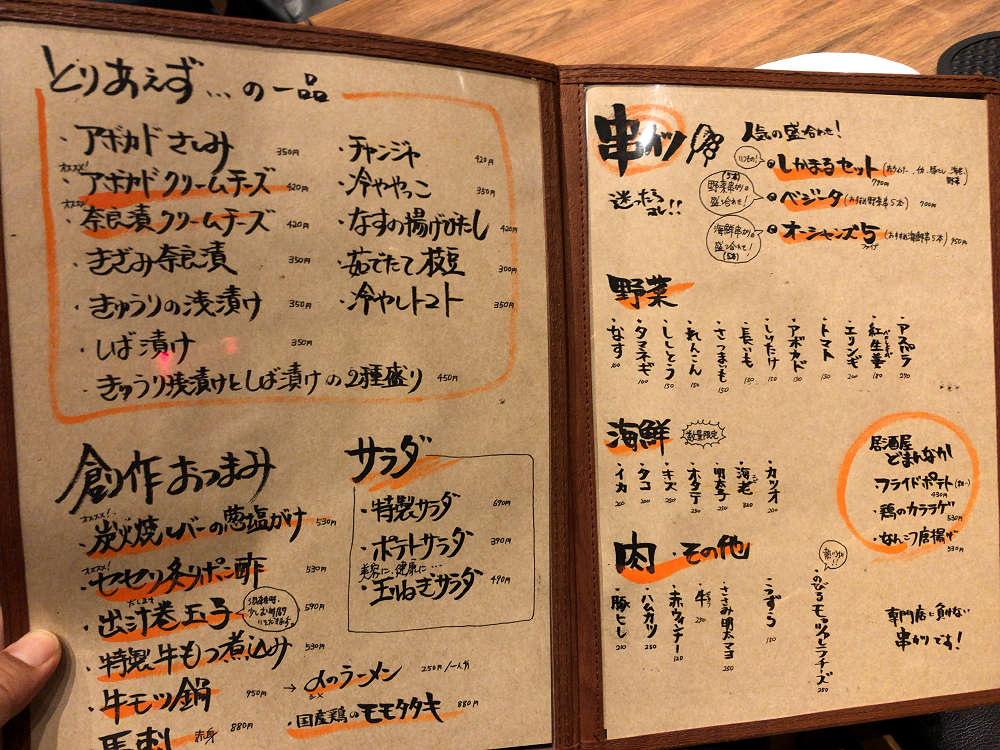 とりあえず…の一品
・アボカドさしみ 350円
オススメ!
・アボカドクリームチーズ 420円
オススメ
・奈良漬クリームチーズ 420円
・きざみ奈良漬 350円
・きゅうりの浅漬け 350円
・しば漬け 350円
・きゅうり浅漬けとしば漬けの2種盛り 450円
・チャンジャ 420円
・冷ややっこ 350円
・なすの揚げびたし 420円
・茹でたて枝豆 300円
・冷やしトマト 350円
創作おつまみ
オススメ!
・炭火焼レバーの葱塩がけ 530円
オススメ!
・セセリ炙りポン酢 530円
・出汁巻玉子 590円
・特製牛もつ煮込み 530円
・牛モツ鍋 950円
→〆のラーメン 250円/一人分
・馬刺 赤身 880円
・国産鶏のモモタタキ 880円
サラダ
・特製サラダ 690円
・ポテトサラダ 390円
美容に、健康に…
・玉ねぎサラダ 490円
串カツ
人気の盛合わせ!
迷ったらコレ!!
いつもの!
・しかまるセット
790円
(5本)
野菜串が
盛り合わせ!
・ベジータ(おすすめ野菜串5本) 700円
海鮮串が
盛り合わせ!
(5本)
・オーシャンズ5(おすすめ海鮮串5本) 950円
ファイブ
野菜
・アスパラ 290
・紅生姜 180
・エリンギ 200
・トマト 150
・アボカド 150
・しいたけ 150
・長いも 150
・さつまいも 150
・れんこん 150
・ししとう 150
・タマネギ 100
・なす 100
海鮮
数量限定
・カツオ 200
・海老
・明太子 250
・ホタテ 250
・キス 200
・タコ 200
・イカ 200
肉・その他
・のびるモッツァレラチーズ 250
・うずら 150
・ささみ明太マヨ 250
・牛 250
・赤ウィンナー 120
・ハムカツ 250
・豚ヒレ 200
居酒屋
どまんなか!
・フライドポテト
430円
・鶏のカラアゲ
530円
・なんこつ唐揚げ
530円
専門店に負けない
串かつです!